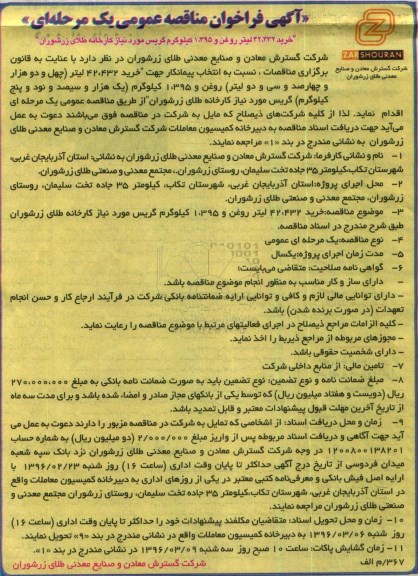 «آگهی فراخوان مناقصه عمومی یک مرحله‌ای»
"خرید ۴۲،۴۳۲ لیتر روغن و ۱،۳۹۵ کیلوگرم گریس مورد نیاز کارخانه طلای زرشوران"
ZARSHOURAN
شرکت گسترش معادن و صنایع
معدنی طلای زرشوران
شرکت گسترش معادن و صنایع معدنی طلای زرشوران در نظر دارد با عنایت به قانون
برگزاری مناقصات ، نسبت به انتخاب پیمانکار جهت "خرید ۴۲،۴۳۲ لیتر (چهل و دو هزار
و چهارصد و سی و دو لیتر) روغن و ۱،۳۹۵ کیلوگرم (یک هزار و سیصد و نود و پنج
کیلوگرم) گریس مورد نیاز کارخانه طلای زرشوران"از طریق مناقصه عمومی یک مرحله ای
اقدام نماید. لذا از کلیه شرکت‌های ذیصلاح که مایل به شرکت در مناقصه فوق می‌باشند دعوت به عمل
می‌آید جهت دریافت اسناد مناقصه به دبیرخانه کمیسیون معاملات شرکت گسترش معادن و صنایع معدنی طلای
زرشوران به نشانی مندرج در بند «۱» مراجعه نمایند.
۱- نام و نشانی کارفرما: شرکت گسترش معادن و صنایع معدنی طلای زرشوران به نشانی: استان آذربایجان غربی،
شهرستان تکاب،کیلومتر ۳۵ جاده تخت سلیمان، روستای زرشوران،، مجتمع معدنی و صنعتی طلای زرشوران.
۲- محل اجرای پروژه:استان آذربایجان غربی، شهرستان تکاب، کیلومتر ۳۵ جاده تخت سلیمان، روستای
زرشوران، مجتمع معدنی و صنعتی طلای زرشوران.
۳- موضوع مناقصه:خرید ۴۲،۴۳۲ لیتر روغن و ۱،۳۹۵ کیلوگرم گریس مورد نیاز کارخانه طلای زرشوران
طبق شرح مندرج در اسناد مناقصه.
۴- نوع مناقصه:یک مرحله ای عمومی
۵- مدت زمان اجرای پروژه:یکسال
۶- گواهی نامه صلاحیت: متقاضی می‌بایست؛
- دارای ساز و کار مناسب به منظور انجام موضوع مناقصه باشد.
- دارای توانایی مالی لازم و کافی و توانایی ارایه ضمانتنامه بانکی شرکت در فرآیند ارجاع کار و حسن انجام
تعهدات (در صورت برنده شدن) باشد.
- کلیه الزامات مراجع ذیصلاح در اجرای فعالیتهای مرتبط با موضوع مناقصه را رعایت نماید.
- مجوزهای مربوطه از مراجع ذیربط را اخذ نماید.
- دارای شخصیت حقوقی باشد.
۷- تامین مالی: از منابع داخلی شرکت
۸- مبلغ ضمانت نامه و نوع تضمین: نوع تضمین باید به صورت ضمانت نامه بانکی به مبلغ ۲۷۰،۰۰۰،۰۰۰
ریال (دویست و هفتاد میلیون ریال) که توسط یکی از بانکهای مجاز صادر و امضا، شده باشد و برای مدت سه ماه
از تاریخ آخرین مهلت قبول پیشنهادات معتبر و قابل تمدید باشد.
۹- زمان و محل دریافت اسناد: از اشخاصی که تمایل به شرکت در مناقصه مزبور را دارند دعوت به عمل می
آید جهت آگاهی و دریافت اسناد مربوطه پس از واریز مبلغ ۲/۰۰۰/۰۰۰ (دو میلیون ریال) به شماره حساب
۱۲۰۰۸۰۰۱۳۸۲۰۱ در وجه شرکت گسترش معادن و صنایع معدنی طلای زرشوران نزد بانک سپه شعبه
میدان فردوسی از تاریخ درج آگهی حداکثر تا پایان وقت اداری (ساعت ۱۶) روز شنبه ۱۳۹۶/۰۲/۲۳ با
ارایه اصل فیش بانکی و معرفی‌نامه کتبی معتبر در یکی از روزهای اداری به دبیرخانه کمیسیون معاملات واقع
در استان آذربایجان غربی، شهرستان تکاب،کیلومتر ۳۵ جاده تخت سلیمان، روستای زرشوران مجتمع معدنی و
صنعتی طلای زرشوران مراجعه نمایند.
۱۰- زمان و محل تحویل اسناد: متقاضیان مکلفند پیشنهادات خود را حداکثر تا پایان وقت اداری (ساعت ۱۶)
روز شنبه ۱۳۹۶/۰۳/۰۶ به دبیرخانه کمیسیون معاملات واقع در نشانی مندرج در بند «۹» تحویل نمایند.
۱۱- زمان گشایش پاکات: ساعت ۱۰ صبح روز سه شنبه ۱۳۹۶/۰۳/۰۹ در نشانی مندرج در بند «۱».
۳۶۷/م الف
شرکت گسترش معادن و صنایع معدنی طلای زرشوران